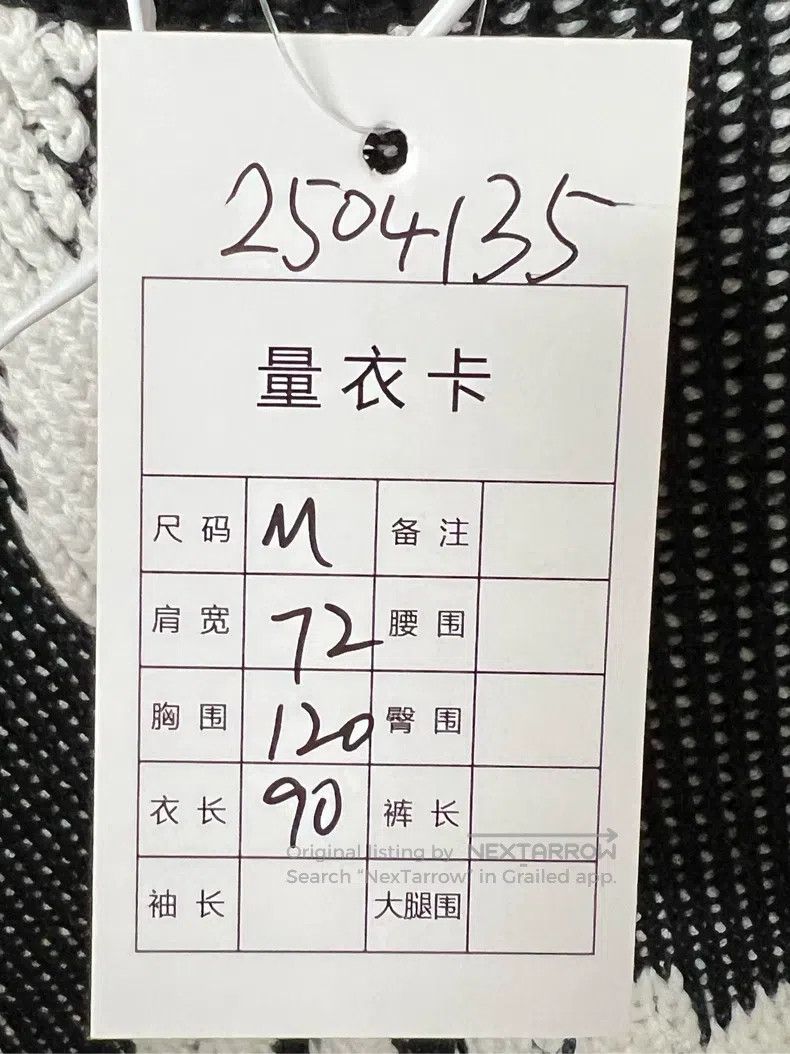 2504135
量衣卡
尺码 M 备注
肩宽 72 腰围
胸围 120 臀围
衣长 90 裤长
袖长 大腿围
Original listing by NEXTARROW
Search "NexTarrow" in Grailed app.